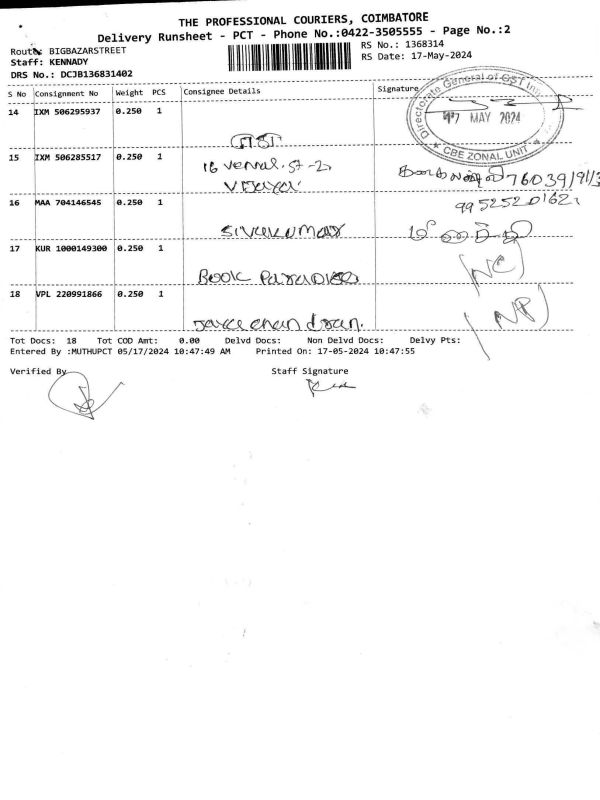 THE PROFESSIONAL COURIERS, COIMBATORE
Delivery Runsheet - PCT - Phone No.:0422-3505555 - Page No.:2
Route: BIGBAZARSTREET
RS No.: 1368314
Staff: KENNADY
RS Date: 17-May-2024
DRS No.: DCJB136831402
S No Consignment No Weight PCS Consignee Details Signature
14 IXM 506295937 0.250 1
GST
Directorate General of GST
17 MAY 2024
★ CBE ZONAL UNIT ★
15 IXM 506285517 0.250 1
16 vernal. st-2,
Vijaya
16 MAA 704146545 0.250 1
9952520162
Sivakumar
17 KUR 1000149300 0.250 1
Book Paradise
(NC)
18 VPL 220991866 0.250 1
Jayachandran.
(NP)
Tot Docs: 18 Tot COD Amt: 0.00 Delvd Docs: Non Delvd Docs: Delvy Pts:
Entered By :MUTHUPCT 05/17/2024 10:47:49 AM Printed On: 17-05-2024 10:47:55
Verified By
Staff Signature